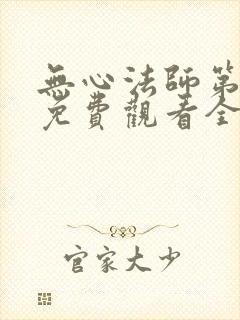 無心法師第
免費觀看全
官家大少